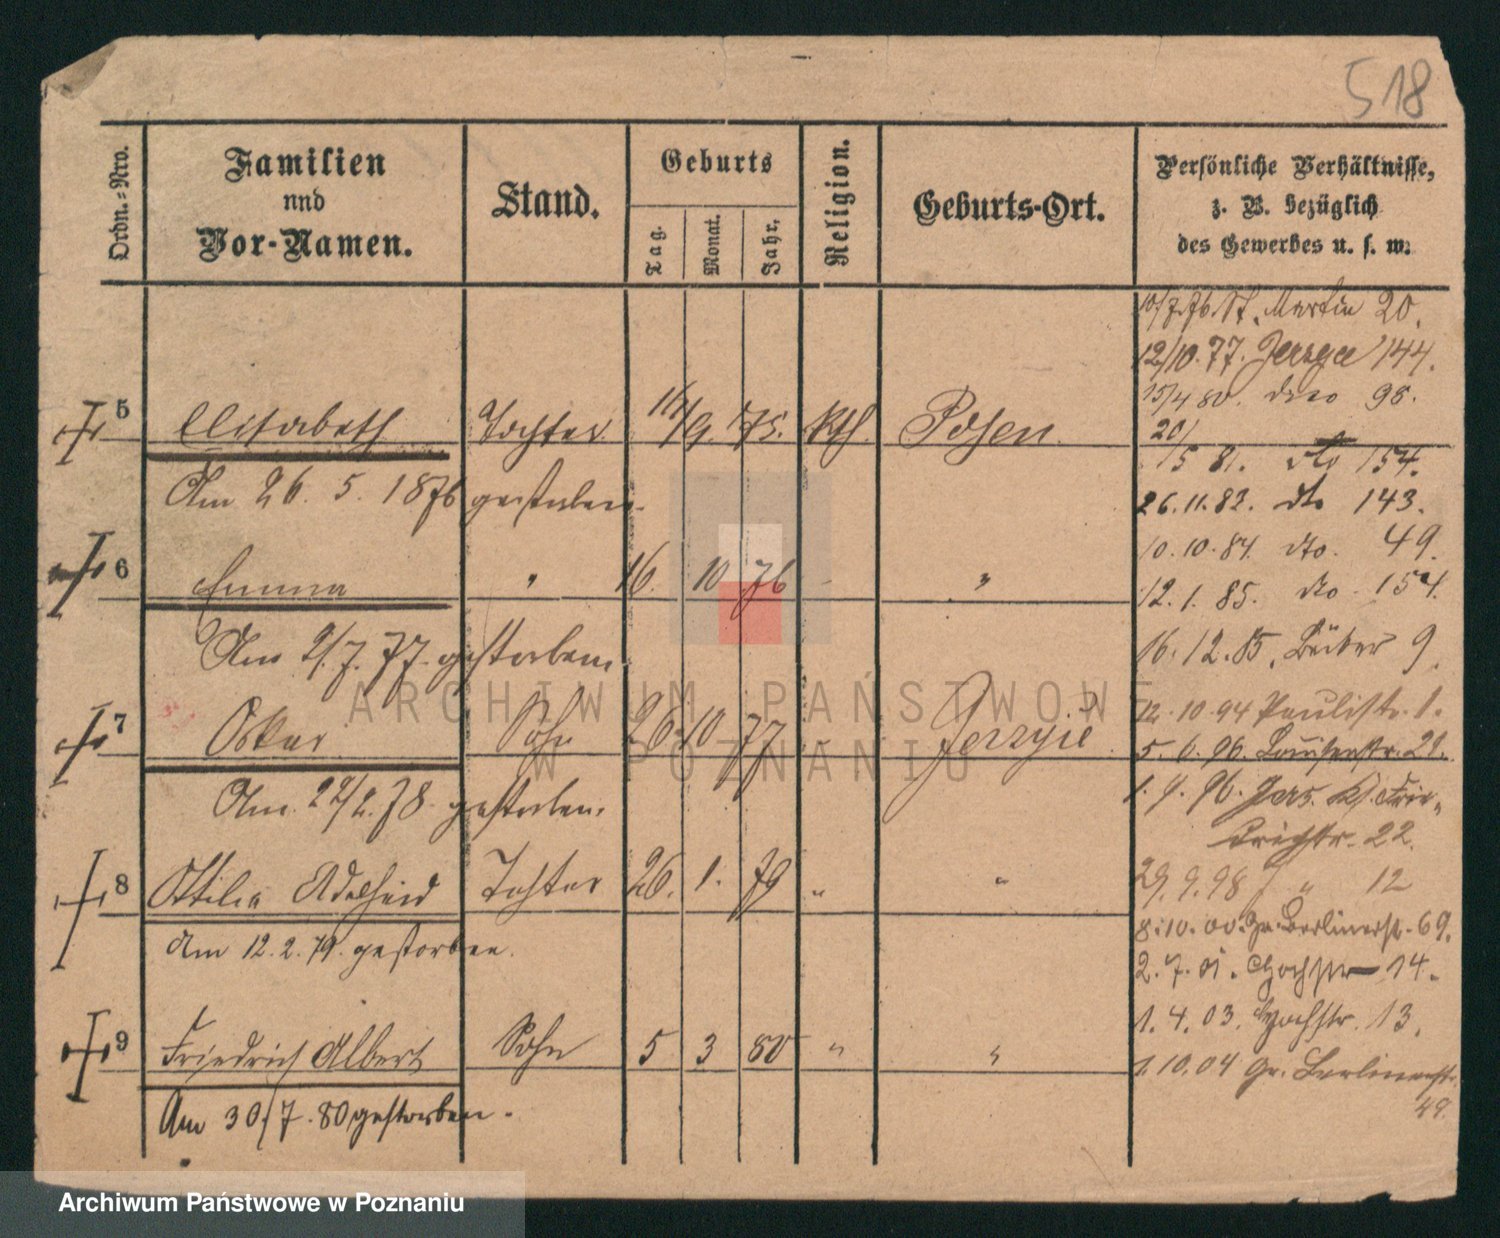 518
Ordn.-Nro.
Familien
und
Vor-Namen.
Stand.
Geburts
Tag.
Monat.
Jahr.
Religion.
Geburts-Ort.
Persönliche Verhältnisse,
z. B. bezüglich
des Gewerbes u. s. w.
10/7.76. St. Martin 20.
12/10.77. Jerzyce 144.
15/4 80. dito 98.
20/
5 81. dto 154.
26.11.82. dto 143.
10.10.84. dto. 49.
12.1.85. dto. 154.
16.12.85. 9.
12.10.94 Paulistr. 1.
5.6.96. Louisenstr. 21.
1.9.96. Jers. Ks. Frie-
drichstr. 22.
29.9.98 J " 12
8.10.00. Gr. Berlinerst. 69.
2.7.01. Hochstr 14.
1.4.03. Hochstr. 13.
1.10.04 Gr. Berlinerstr.
49.
5 Elisabeth Tochter 11/9. 75. kth. Posen
Am 26. 5. 1876 gestorben.
6 Emma " 16. 10 76 "
Am 2/7. 77. gestorben
7 Oskar Sohn 26. 10 77 " Jerzyce
Am 22/2. 78. gestorben.
8 Ottilie Adelheid Tochter 26. 1. 79 " "
Am 12. 2. 79. gestorben.
9 Friedrich Albert Sohn 5 3 80 " "
Am 30/7. 80 gestorben.
ARCHIWUM PAŃSTWOWE
W POZNANIU
Archiwum Państwowe w Poznaniu